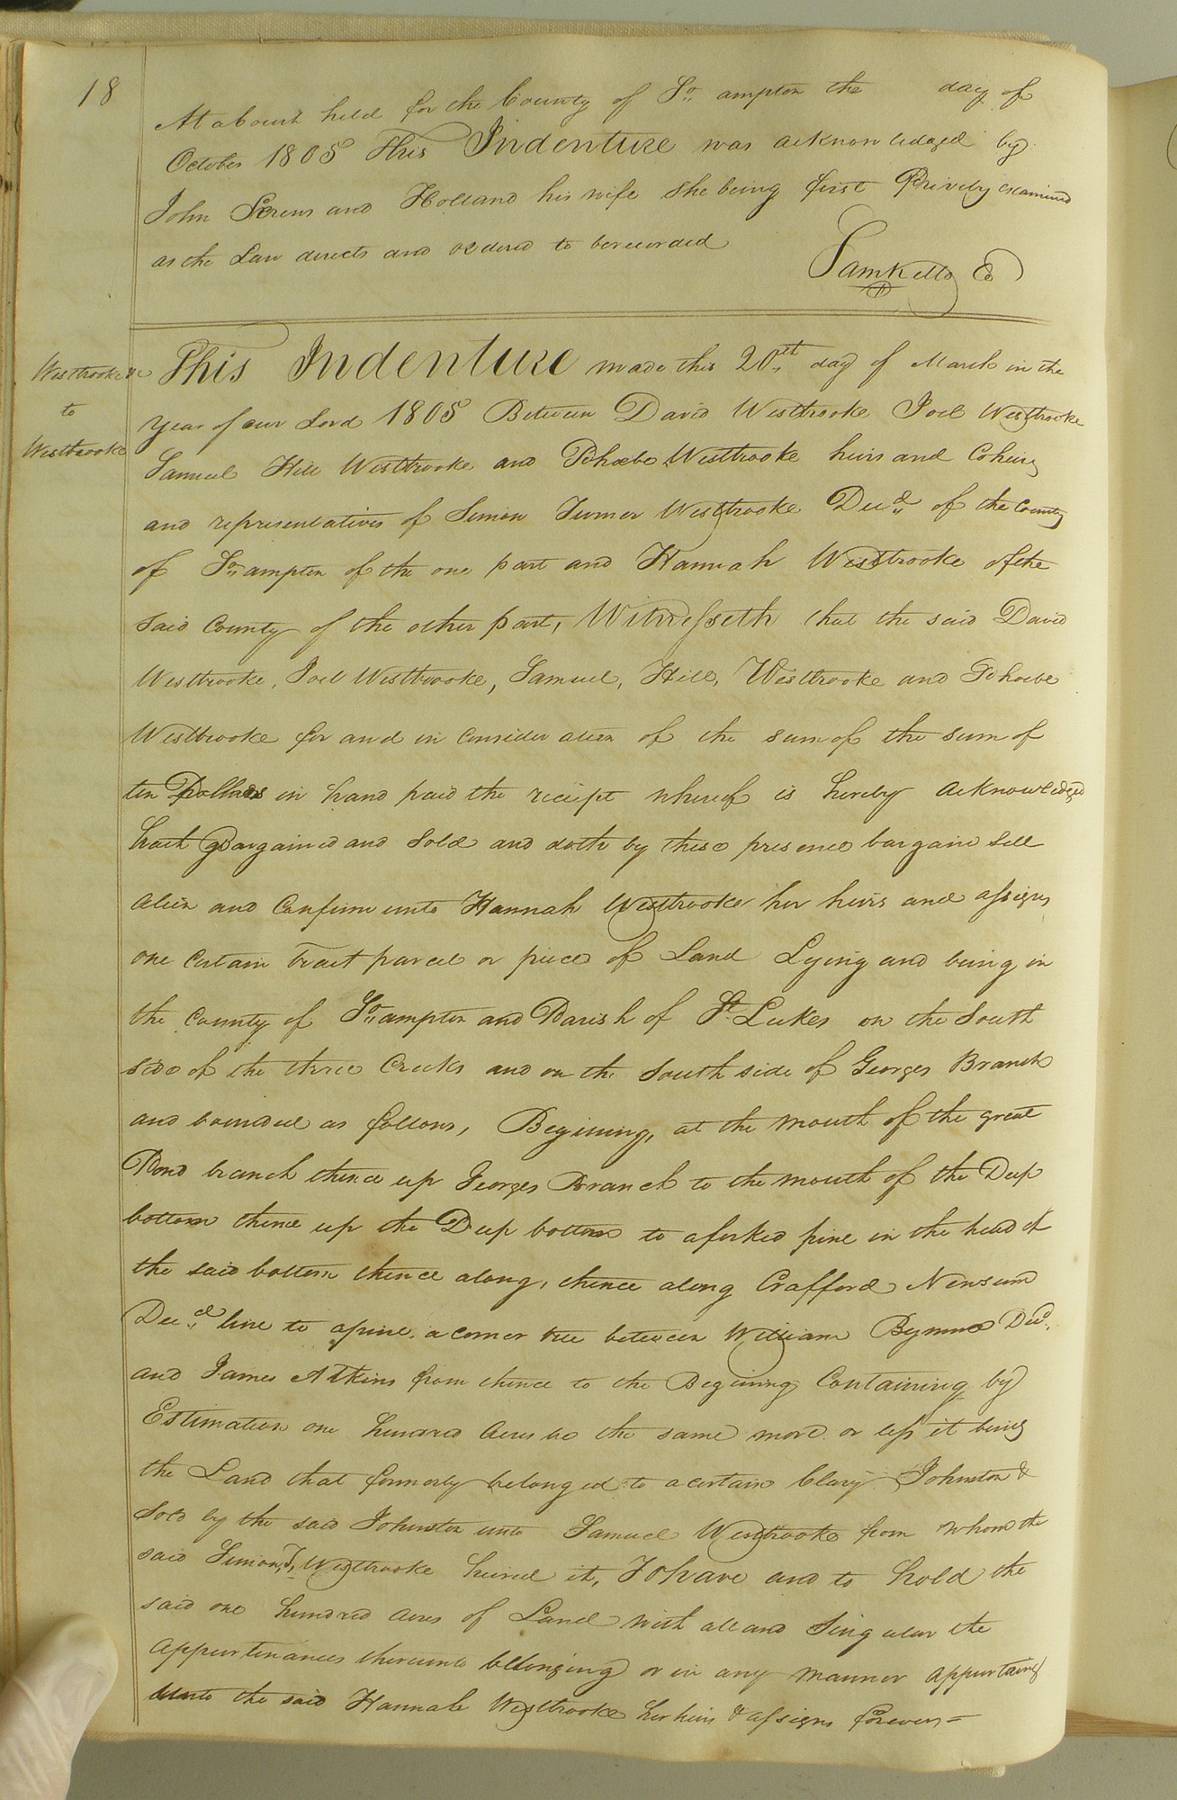 18
At a Court held for the County of So.. ampton the day of
October 1805 This Indenture was acknowledged by
John and Holland his wife She being first Privily examined
as the Law directs and ordered to be recorded
Sam Kello Co
Westbrooke &c
to
Westbrooke
This Indenture made this 20th day of March in the
year of our Lord 1805 Between David Westbrooke Joel Westbrooke
Samuel Hill Westbrooke and Phoebe Westbrooke heirs and Coheirs
and representatives of Simon Turner Westbrooke Decd of the County
of So..ampton of the one part and Hannah Westbrooke of the
said County of the other part, Witnesseth that the said David
Westbrooke, Joel Westbrooke, Samuel, Hill, Westbrooke and Phoebe
Westbrooke for and in consideration of the sum of the sum of
ten Dollars in hand paid the reciept whereof is hereby acknowledged
hath Bargained and Sold and doth by these presence bargain Sell
alien and Confirm unto Hannah Westbrooke her heirs and assigns
one certain tract parcel or piece of Land Lying and being in
the County of So..ampton and Parish of St Lukes on the South
side of the three Creeks and on the South side of Georges Branch
and bounded as follows, Begining, at the mouth of the great
Pond branch thence up Georges Branch to the mouth of the Deep
bottom thence up the Deep bottom to a forked pine in the head of
the said bottom thence along, thence along Crafford Newsum
Decd line to a pine, a corner tree between William Bynum Decd.
and James Atkins from thence to the Begining Containing by
Estimation one hundred acres be the same more or less it being
the Land that formerly belonged to a certain Clary Johnston &
Sold by the said Johnston unto Samuel Westbrooke from whom the
said Simon T, Westbrooke heired it, To have and to hold the
said one hundred acres of Land with all and Singular the
appurtenances thereunto belonging or in any manner appurtaing
Unto the said Hannah Westbrooke her heirs & assigns forever =